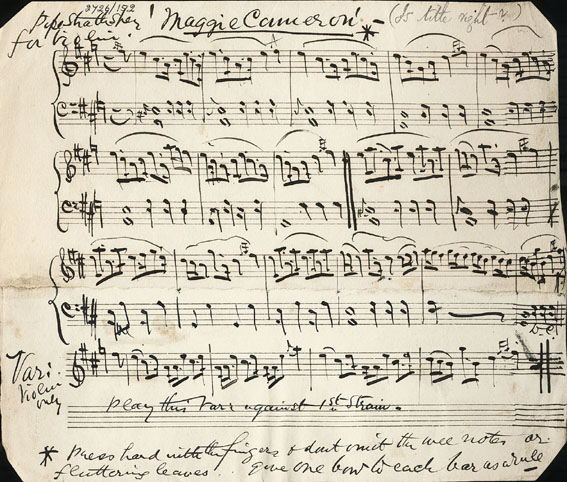 3726/192
Pipe Strathspey 'Maggie Cameron' * - (Is title right-?)
for violin.
Vari:
Violin
only
Play this Vari against 1st Strain.
* Press hard with the fingers & dont omit the wee notes or
fluttering leaves.. give one bow to each bar as a rule